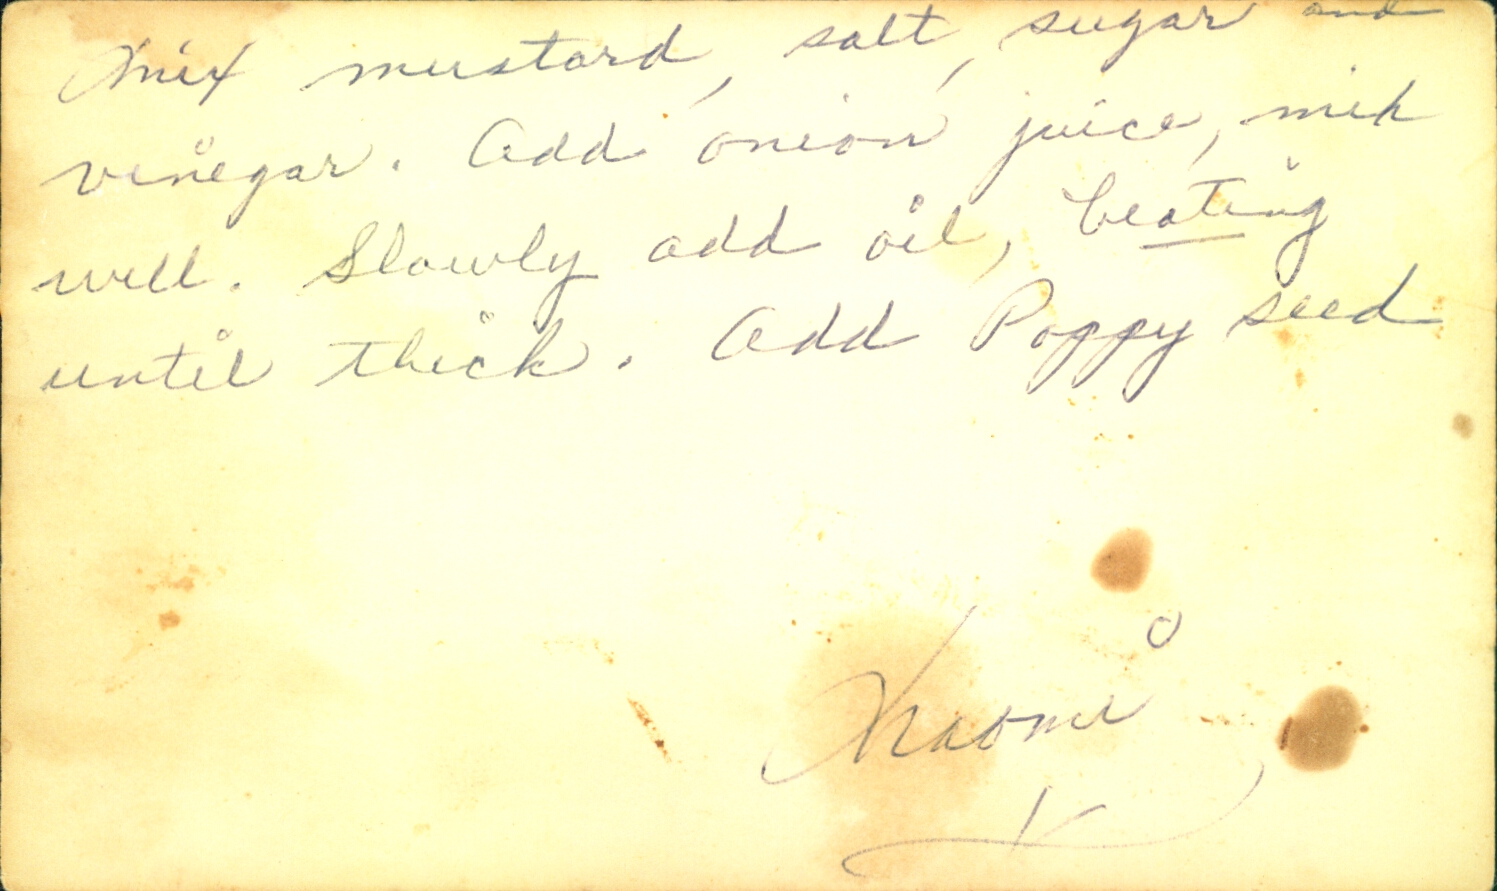 Mix mustard, salt, sugar and
vinegar. Add onion juice, mix
well. Slowly add oil, beating
until thick. Add Poppy seed
Naomi